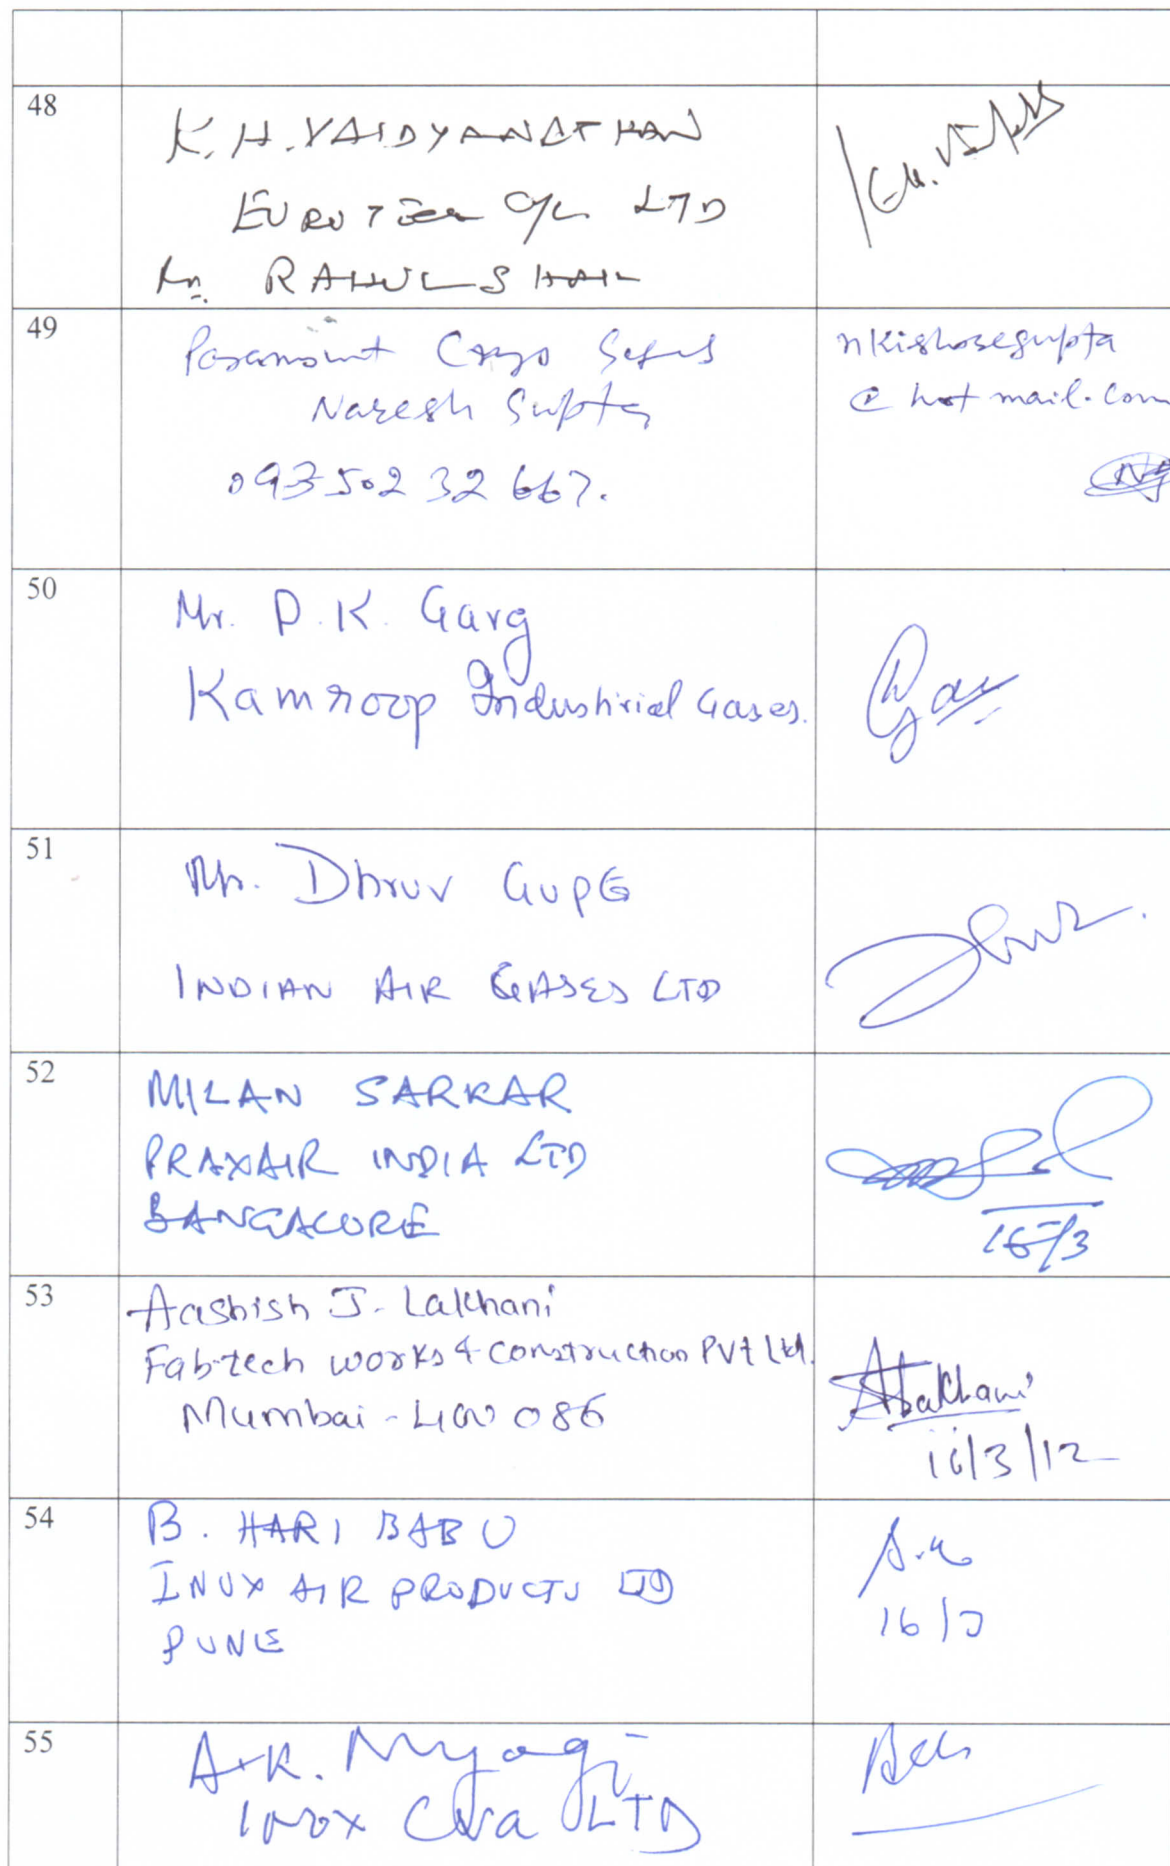 48
K. H. VAIDYANATHAN
LTD
RAHUL SHAH
49
Paramount Cargo
Naresh Gupta
09350232667.
nkishoregupta
@ hotmail.com
50
Mr. P.K. Garg
Kamroop Industirial Gases.
51
Mr. Dhruv Gupta
INDIAN AIR GASES LTD
52
MILAN SARKAR
PRAXAIR INDIA LTD
BANGALORE
53
Aashish J. Lakhani
Fabtech works & construction Pvt Ltd.
Mumbai - 400 086
16/3/12
54
B. HARI BABU
INOX AIR PRODUCTS LTD
PUNE
16/3
55
A.K.
INOX CVA LTD